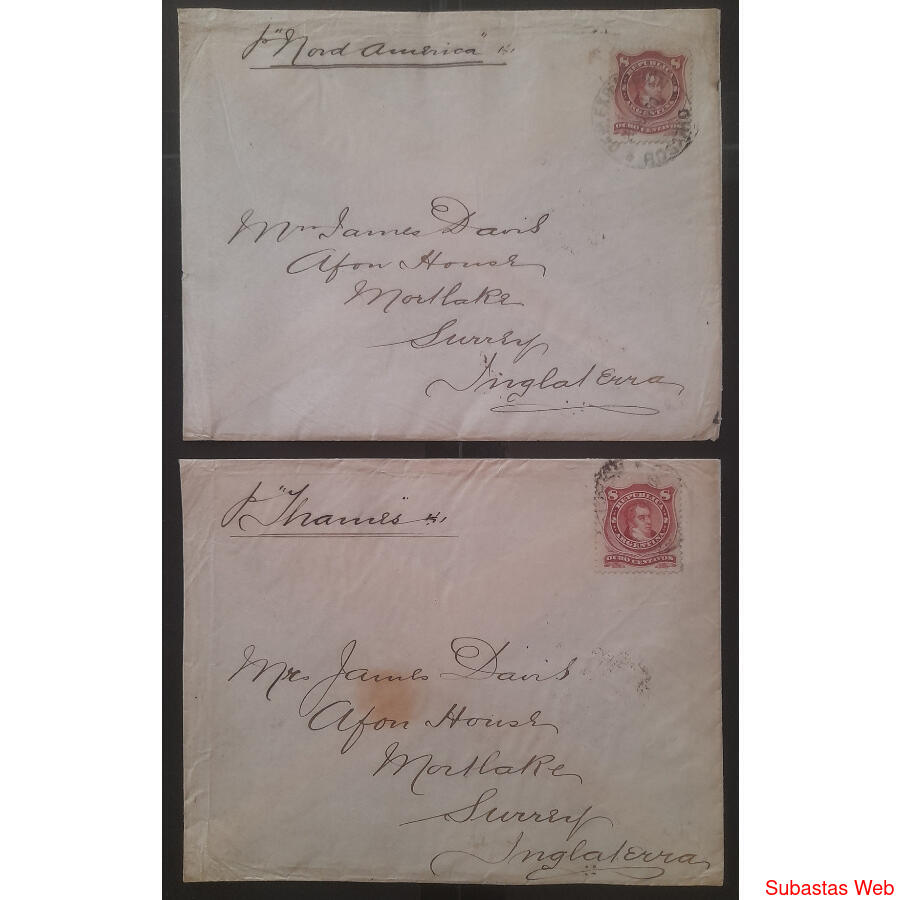 p "Nord America"
8 8
REPUBLICA
ARGENTINA
OCHO CENTAVOS
ROSARIO
Mrs James Davis
Afon House
Mortlake
Surrey
Inglaterra
p "Thames"
8 8
REPUBLICA
ARGENTINA
OCHO CENTAVOS
Mrs James Davis
Afon House
Mortlake
Surrey
Inglaterra
Subastas Web